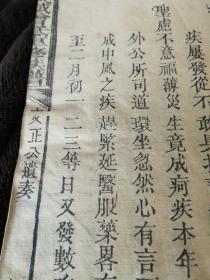 疾屢發從不敢具
聖慮不意福薄災生竟成痾疾本年
外公所司道環坐忽然心有言
成中風之疾趕緊延醫服藥畧
至二月初一二三等日又發數
文正公遺奏